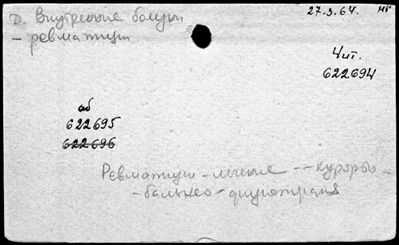 27.3.64. НГ
D. Внутренние болезни
– ревматизм
Чит.
622694
аб
622695
622696
Ревматизм – лечение – – курорты –
– бальнео – физиотерапия